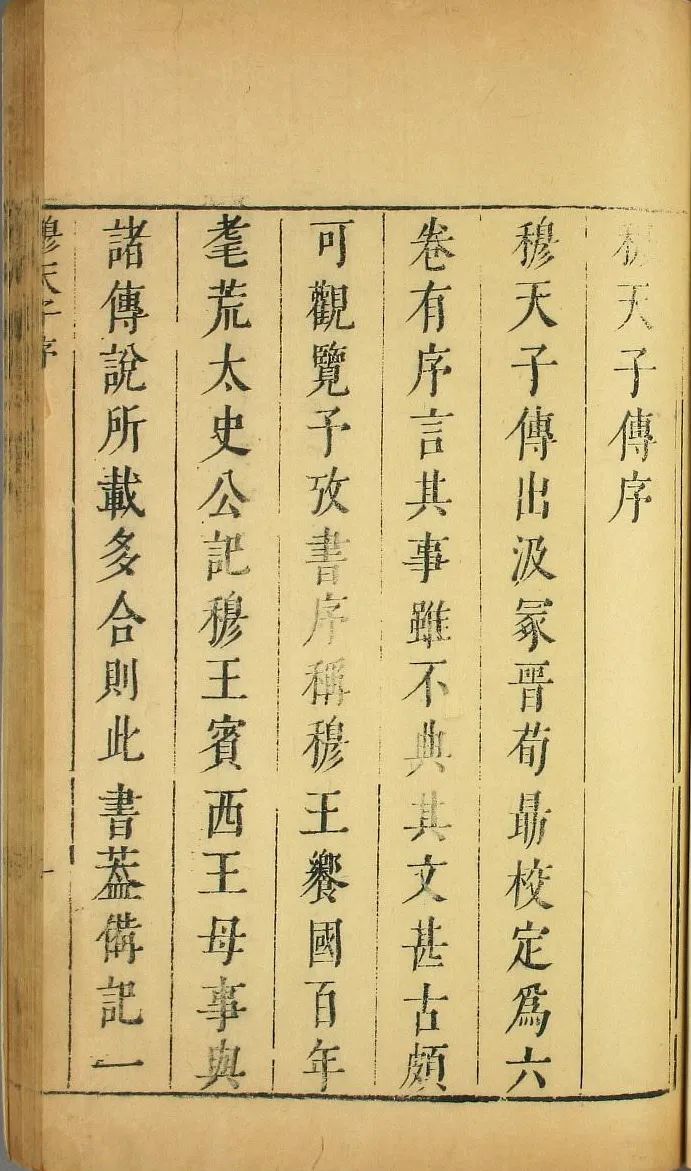 穆天子傳序
穆天子傳出汲冢晉荀勗校定爲六
卷有序言其事雖不典其文甚古頗
可觀覽予攷書序稱穆王饗國百年
耄荒太史公記穆王賓西王母事與
諸傳說所載多合則此書葢備記一
穆天子序
一